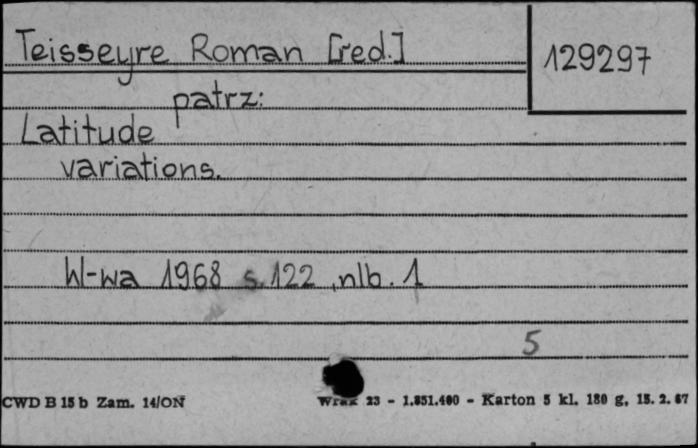 Teisseyre Roman [red.]
129297
patrz:
Latitude
variations.
W-wa 1968 s. 122, nlb. 1
5
CWD B 15 b Zam. 14/ON
23 - 1.851.400 - Karton 5 kl. 180 g, 15. 2. 67